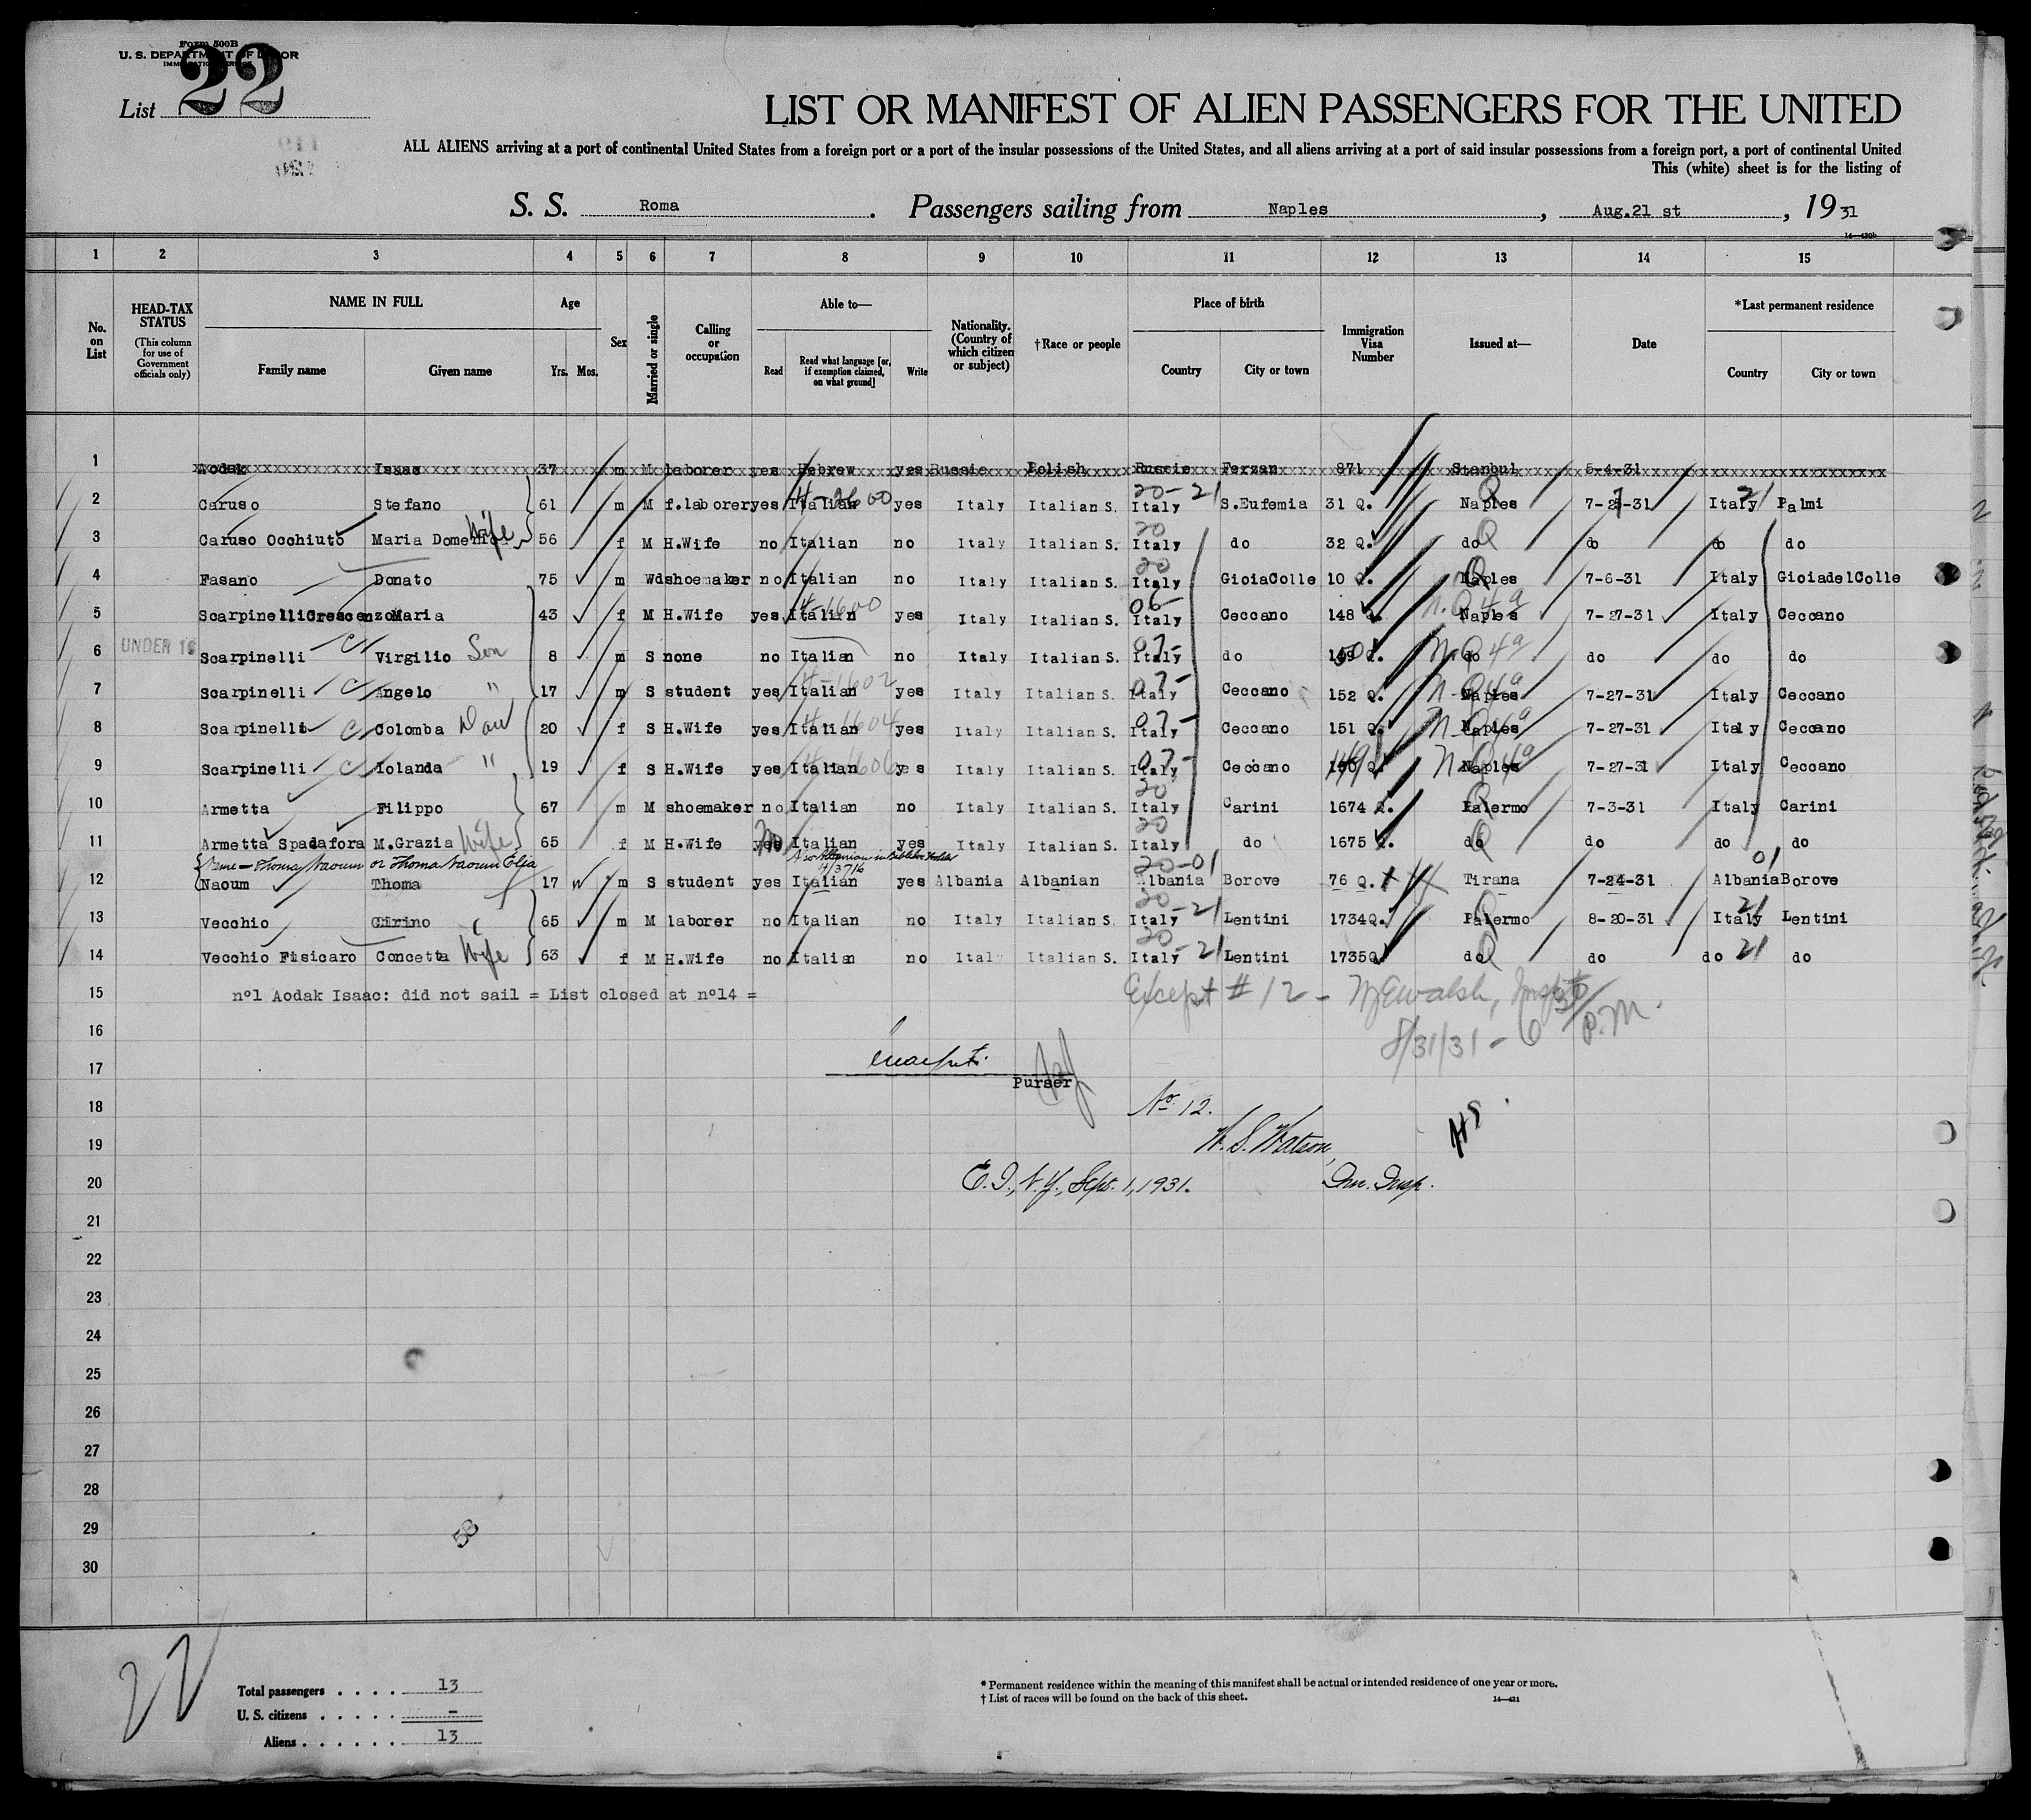 Form 500B
U. S. DEPARTMENT OF LABOR
List 22
LIST OR MANIFEST OF ALIEN PASSENGERS FOR THE UNITED
ALL ALIENS arriving at a port of continental United States from a foreign port or a port of the insular possessions of the United States, and all aliens arriving at a port of said insular possessions from a foreign port, a port of continental United
This (white) sheet is for the listing of
S. S. Roma. Passengers sailing from Naples, Aug.21 st, 1931
14—420b
1 2 3 4 5 6 7 8 9 10 11 12 13 14 15
No. on List
HEAD-TAX STATUS (This column for use of Government officials only)
NAME IN FULL Family name Given name
Age Yrs. Mos.
Sex
Married or single
Calling or occupation
Able to— Read Read what language [or, if exemption claimed, on what ground] Write
Nationality. (Country of which citizen or subject)
†Race or people
Place of birth Country City or town
Immigration Visa Number
Issued at—
Date
*Last permanent residence Country City or town
1 Aodak Isaac 37 m M laborer yes Hebrew yes Russie Polish Russie Ferzan 871 Stanbul 5-4-31
2 Caruso Stefano 61 m M f.laborer yes Italian yes Italy Italian S. 20-21 Italy S.Eufemia 31 Q. Naples Q 7-27-31 Italy 21 Palmi
3 Caruso Occhiuto Maria Domenica Wife 56 f M H.Wife no Italian no Italy Italian S. 20 Italy do 32 Q. do Q do do do
4 Fasano Donato 75 m Wd shoemaker no Italian no Italy Italian S. 20 Italy GioiaColle 10 Q. Naples Q 7-6-31 Italy GioiadelColle
5 Scarpinelli Crescenzo Maria 43 f M H.Wife yes Italian yes Italy Italian S. 06- Italy Ceccano 148 Q. Naples 7-27-31 Italy Ceccano
UNDER 16
6 Scarpinelli Virgilio Son 8 m S none no Italian no Italy Italian S. 07- Italy do 150 Q. do do do do
7 Scarpinelli Angelo " 17 m S student yes Italian yes Italy Italian S. 07- Italy Ceccano 152 Q. Naples 7-27-31 Italy Ceccano
8 Scarpinelli Colomba Dau 20 f S H.Wife yes Italian yes Italy Italian S. 07- Italy Ceccano 151 Q. Naples 7-27-31 Italy Ceccano
9 Scarpinelli Iolanda " 19 f S H.Wife yes Italian yes Italy Italian S. 07- Italy Ceccano 149 Q. Naples 7-27-31 Italy Ceccano
10 Armetta Filippo 67 m M shoemaker no Italian no Italy Italian S. 20 Italy Carini 1674 Q. Palermo Q 7-3-31 Italy Carini
11 Armetta Spadafora M.Grazia Wife 65 f M H.Wife no Italian yes Italy Italian S. 20 Italy do 1675 Q. do Q do do do
Name — Thomas Naoum or Thoma Naoum Elia
12 Naoum Thoma 17 m S student yes Italian yes Albania Albanian 20-01 Albania Borove 76 Q. Tirana 7-24-31 Albania 01 Borove
13 Vecchio Cirino 65 m M laborer no Italian no Italy Italian S. 20 Italy-21 Lentini 1734Q. Palermo Q 8-20-31 Italy 21 Lentini
14 Vecchio Fisicaro Concetta Wife 63 f M H.Wife no Italian no Italy Italian S. 20 Italy-21 Lentini 1735Q do Q do do 21 do
15 n°1 Aodak Isaac: did not sail = List closed at n°14 =
Except # 12 - Walsh, Inspt
16
8/31/31 - 6 P.M.
17
Purser
18 No. 12.
19 W. S. Watson,
20 E. I., N. Y., Sept. 1, 1931. Imm. Insp.
21
22
23
24
25
26
27
28
29
58
30
22
Total passengers . . . . 13
U. S. citizens . . . . . –
Aliens . . . . . . 13
* Permanent residence within the meaning of this manifest shall be actual or intended residence of one year or more.
† List of races will be found on the back of this sheet. 14—431